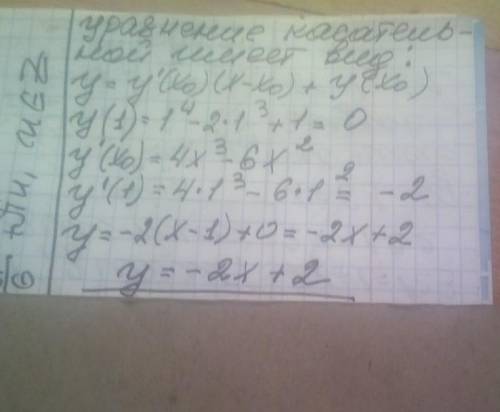 уравнение касатель-
ной имеет вид:
y = y'(x₀)(x-x₀) + y(x₀)
y(1) = 1⁴ - 2·1³ + 1 = 0
y'(x₀) = 4x³ - 6x²
y'(1) = 4·1³ - 6·1² = -2
y = -2(x-1)+0 = -2x+2
y = -2x+2
6 + πn, n∈Z